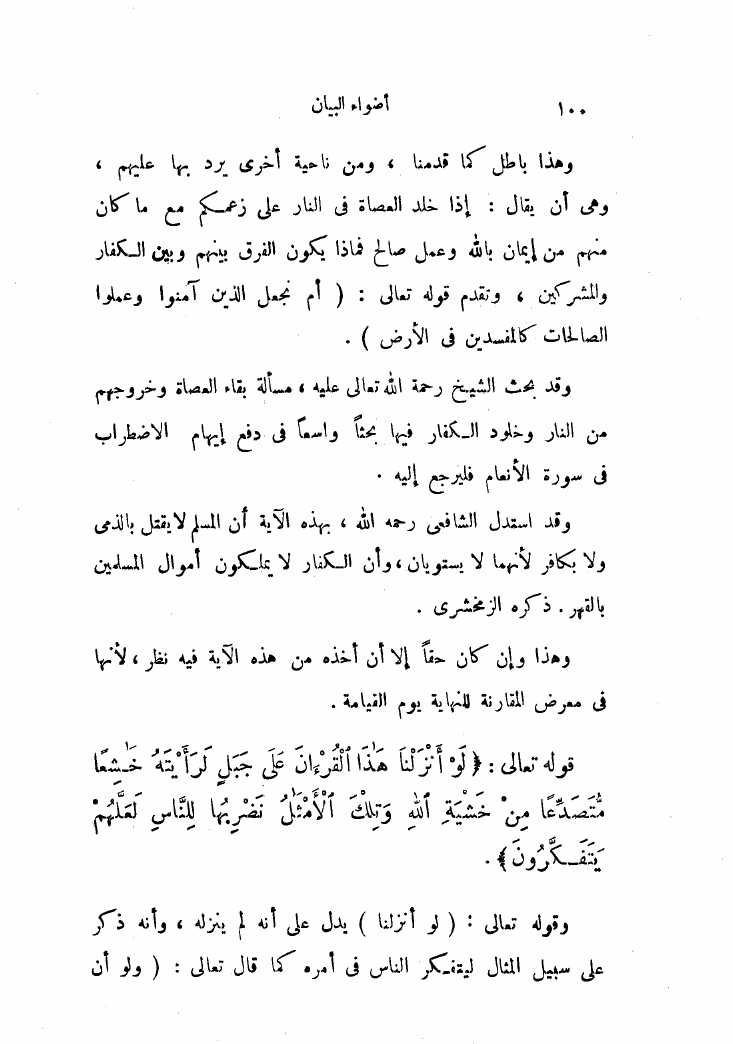 ١٠٠ أضواء البيان
وهذا باطل كما قدمنا ، ومن ناحية أخرى يرد بها عليهم ،
وهى أن يقال : إذا خلد العصاة فى النار على زعمكم مع ما كان
منهم من إيمان بالله وعمل صالح فماذا يكون الفرق بينهم وبين الكفار
والمشركين ، وتقدم قوله تعالى : ( أم نجعل الذين آمنوا وعملوا
الصالحات كالمفسدين فى الأرض ) .
وقد بحث الشيخ رحمة الله تعالى عليه ، مسألة بقاء العصاة وخروجهم
من النار وخلود الكفار فيها بحثاً واسعاً فى دفع إيهام الاضطراب
فى سورة الأنعام فليرجع إليه .
وقد استدل الشافعى رحمه الله ، بهذه الآية أن المسلم لايقتل بالذمى
ولا بكافر لأنهما لا يستويان ، وأن الكفار لا يملكون أموال المسلمين
بالقهر . ذكره الزمخشرى .
وهذا وإن كان حقاً إلا أن أخذه من هذه الآية فيه نظر ، لأنها
فى معرض المقارنة للنهاية يوم القيامة .
قوله تعالى : ﴿ لَوْ أَنْزَلْنَا هَٰذَا ٱلْقُرْءَانَ عَلَى جَبَلٍ لَرَأَيْتَهُ خَٰشِعًا
مُّتَصَدِّعًا مِنْ خَشْيَةِ ٱللهِ وَتِلْكَ ٱلْأَمْثَٰلُ نَضْرِبُهَا لِلنَّاسِ لَعَلَّهُمْ
يَتَفَكَّرُونَ ﴾ .
وقوله تعالى : ( لو أنزلنا ) يدل على أنه لم ينزله ، وأنه ذكر
على سبيل المثال ليتفكر الناس فى أمره كما قال تعالى : ( ولو أن